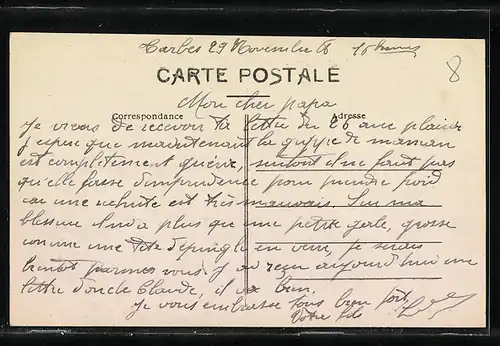 Tarbes 29 Novembre 16 heures
8
CARTE POSTALE
Mon cher papa
Correspondance
Adresse
Je viens de recevoir ta lettre du 26 avec plaisir
J'espère que maintenant la grippe de maman
est complètement guérie, surtout il ne faut pas
qu'elle fasse d'imprudence pour prendre froid
car une rechute est très mauvais. Sur ma
blessure il n'y a plus que une petite gale, grosse
comme une tête d'épingle en verre, je serais
bientôt parmi vous. J'ai reçu aujourd'hui une
lettre d'oncle Claude, il va bien.
Je vous embrasse tous bien fort
Votre fils